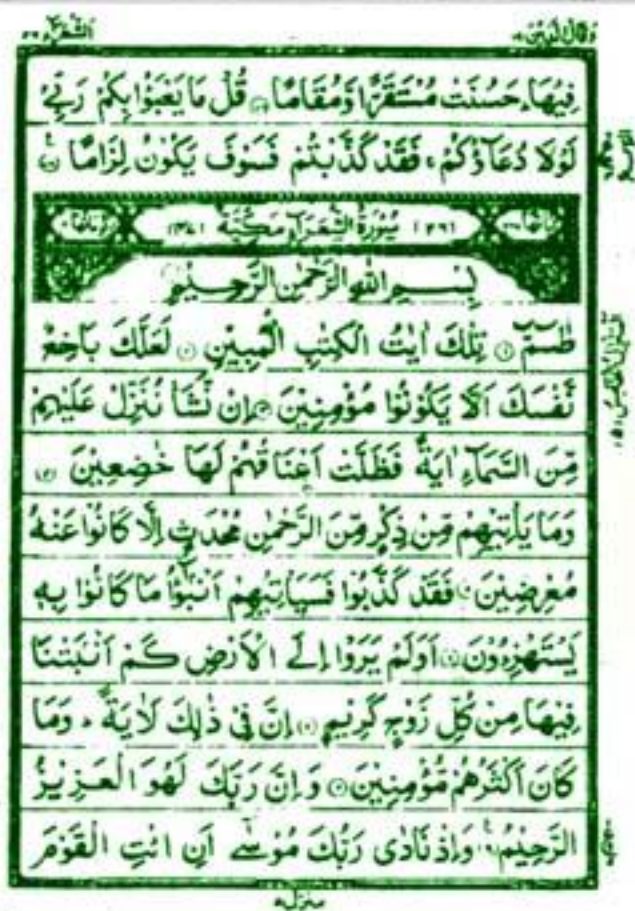 وقال الذین ۱۹
الشعراء ۲۶
فِيْهَا ؕ حَسُنَتْ مُسْتَقَرًّا وَّمُقَامًا ۝ قُلْ مَا يَعْبَؤُا بِكُمْ رَبِّيْ
لَوْلَا دُعَآؤُكُمْ ۚ فَقَدْ كَذَّبْتُمْ فَسَوْفَ يَكُوْنُ لِزَامًا ۝
(۲۶) سُوْرَةُ الشُّعَرَآءِ مَكِّيَّةٌ (۴۷)
بِسْمِ اللهِ الرَّحْمٰنِ الرَّحِيْمِ
طٰسٓمّٓ ۝ تِلْكَ اٰيٰتُ الْكِتٰبِ الْمُبِيْنِ ۝ لَعَلَّكَ بَاخِعٌ
نَّفْسَكَ اَلَّا يَكُوْنُوْا مُؤْمِنِيْنَ ۝ اِنْ نَّشَاْ نُنَزِّلْ عَلَيْهِمْ
مِّنَ السَّمَآءِ اٰيَةً فَظَلَّتْ اَعْنَاقُهُمْ لَهَا خٰضِعِيْنَ ۝
وَمَا يَاْتِيْهِمْ مِّنْ ذِكْرٍ مِّنَ الرَّحْمٰنِ مُحْدَثٍ اِلَّا كَانُوْا عَنْهُ
مُعْرِضِيْنَ ۝ فَقَدْ كَذَّبُوْا فَسَيَاْتِيْهِمْ اَنْۢبٰٓؤُا مَا كَانُوْا بِهٖ
يَسْتَهْزِءُوْنَ ۝ اَوَلَمْ يَرَوْا اِلَى الْاَرْضِ كَمْ اَنْۢبَتْنَا
فِيْهَا مِنْ كُلِّ زَوْجٍ كَرِيْمٍ ۝ اِنَّ فِيْ ذٰلِكَ لَاٰيَةً ؕ وَمَا
كَانَ اَكْثَرُهُمْ مُّؤْمِنِيْنَ ۝ وَاِنَّ رَبَّكَ لَهُوَ الْعَزِيْزُ
الرَّحِيْمُ ۝ وَاِذْ نَادٰى رَبُّكَ مُوْسٰٓى اَنِ ائْتِ الْقَوْمَ
منزل ۵